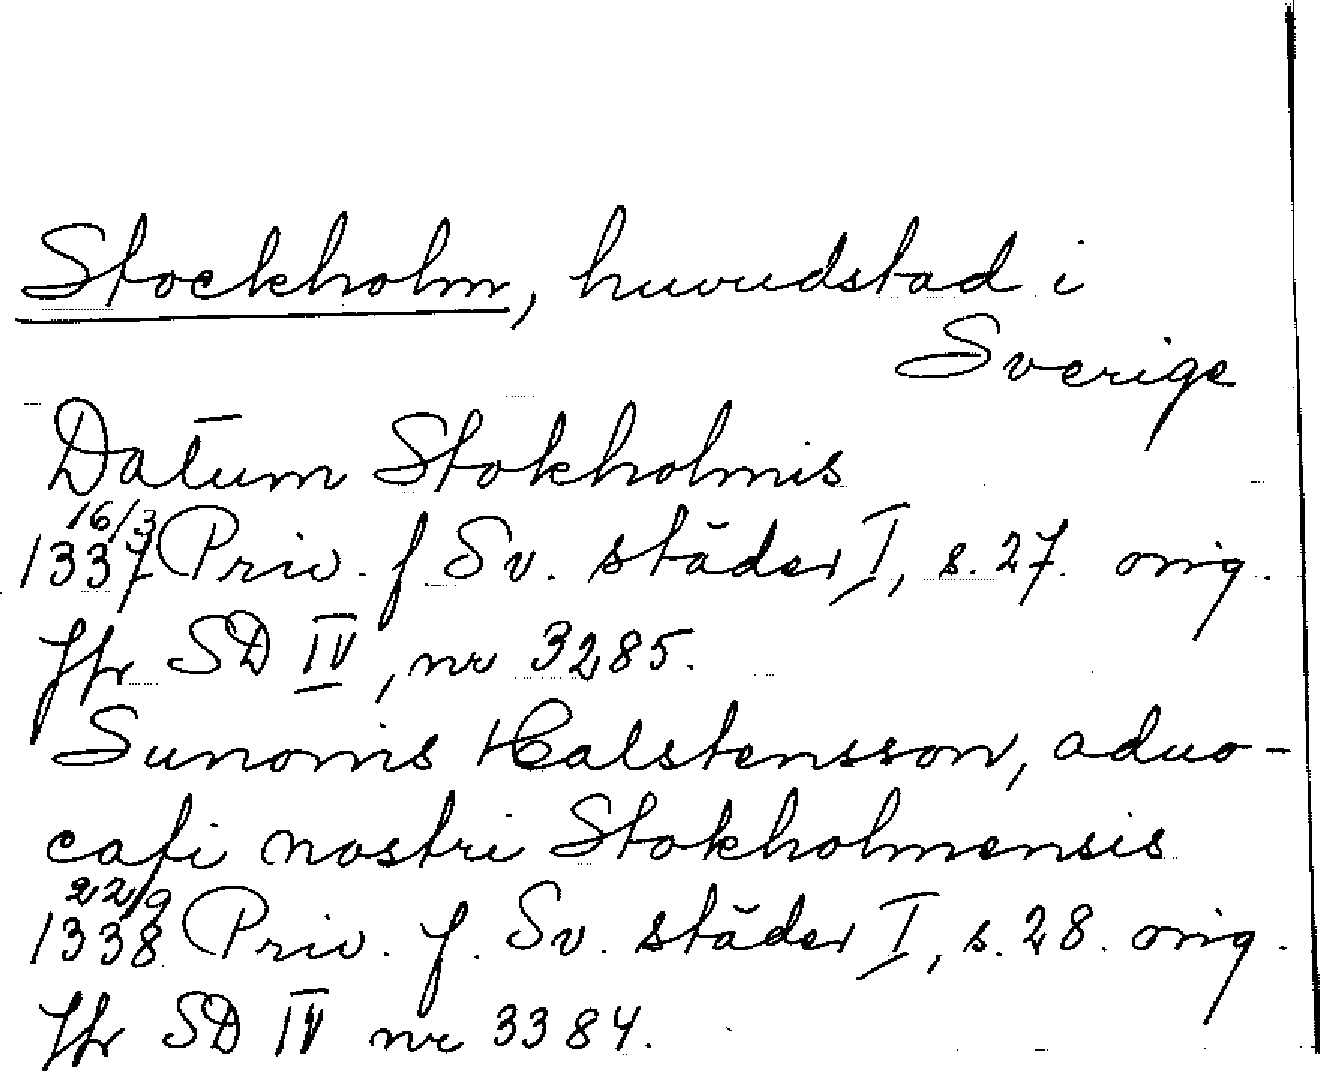 Stockholm, huvudstad i
Sverige
Datum Stokholmis
16/3
1337 Priv. f. Sv. städer I, s. 27. orig.
Jfr SD IV, nr 3285.
Sunonis Halstensson, aduo-
cati nostri Stokholmensis
22/9
1338 Priv. f. Sv. städer I, s. 28. orig.
Jfr SD IV nr 3384.